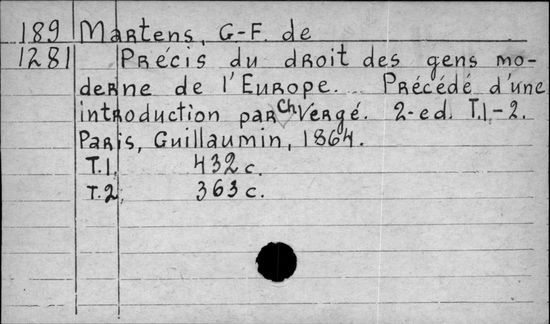 189 Martens, G-F. de
1281 Précis du droit des gens mo-
derne de l'Europe. Précédé d'une
introduction par Ch Vergé. 2-ed. T.1-2.
Paris, Guillaumin, 1864.
T.1. 432 c.
T.2. 363 c.